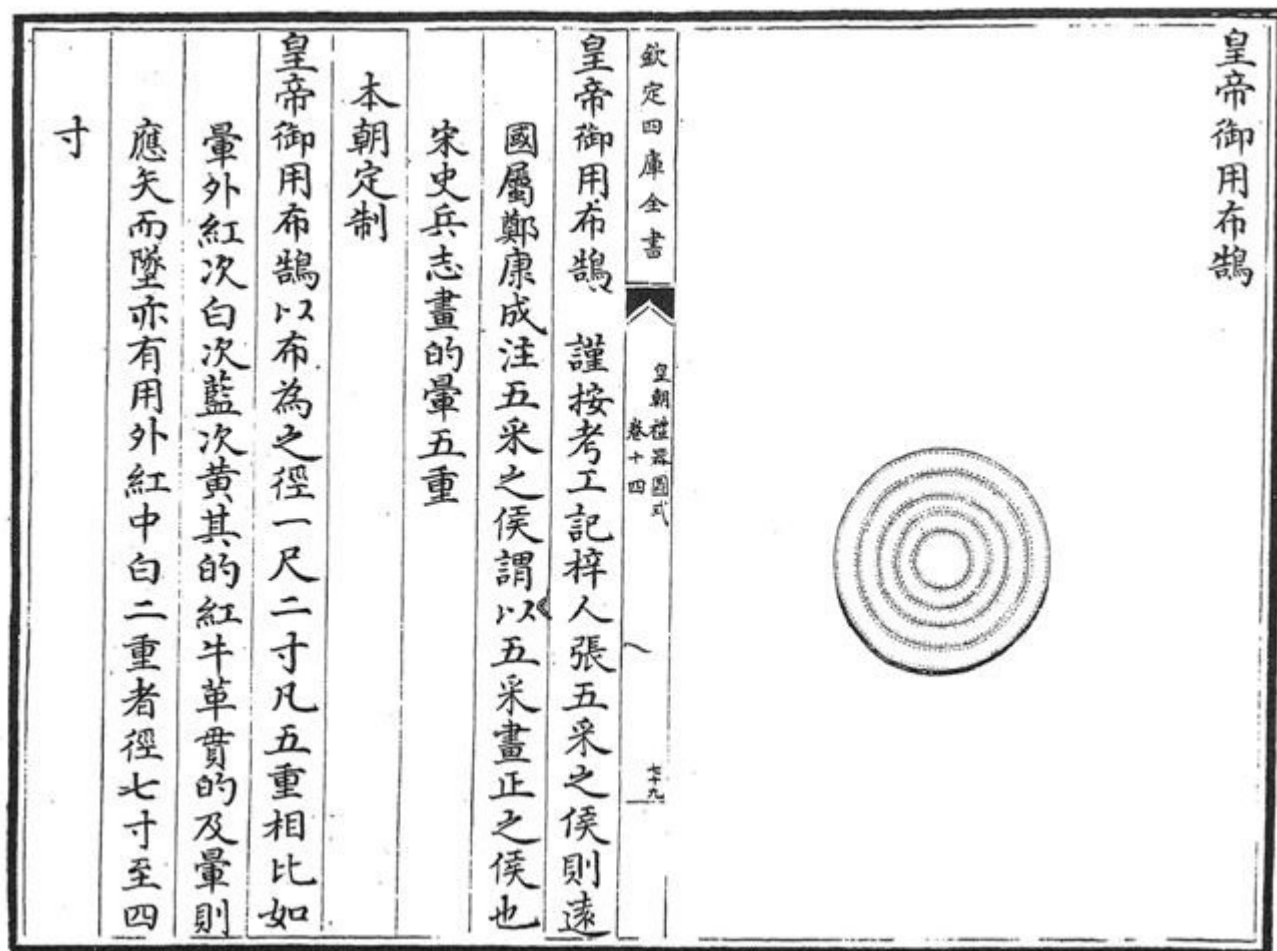 皇帝御用布鵠
欽定四庫全書
皇朝禮器圖式
卷十四
七十九
皇帝御用布鵠 謹按考工記梓人張五采之侯則遠
國屬鄭康成注五采之侯謂以五采畫正之侯也
宋史兵志畫的暈五重
本朝定制
皇帝御用布鵠以布為之徑一尺二寸凡五重相比如
暈外紅次白次藍次黃其的紅牛革貫的及暈則
應矢而墜亦有用外紅中白二重者徑七寸至四
寸